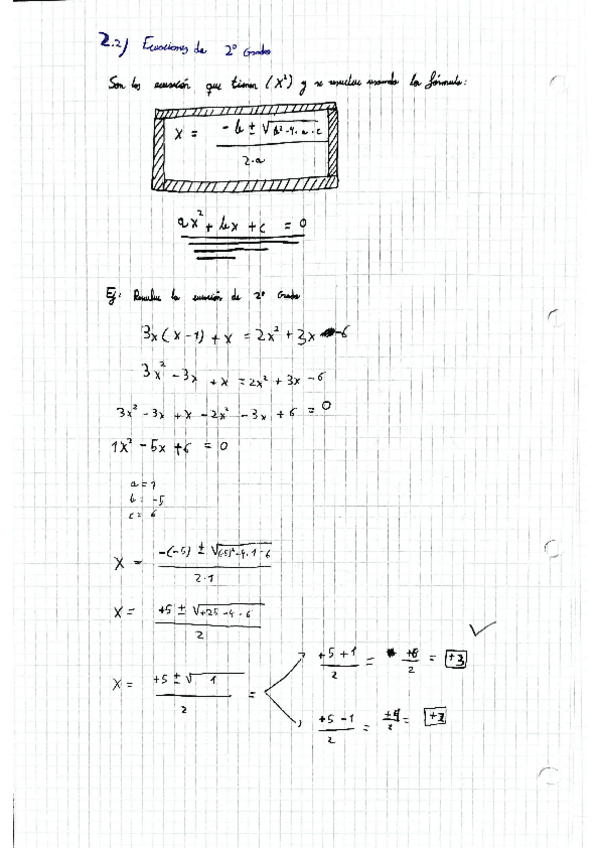 2.2) Ecuaciones de 2º Grado
Son las ecuación que tienen (X²) y se resuelve usando la fórmula:
X = -b ± √b²-4·a·c / 2·a
ax² + bx + c = 0
Ej: Resuelve la ecuación de 2º Grado
3x(x-1) + x = 2x² + 3x -6
3x² - 3x + x = 2x² + 3x - 6
3x² - 3x + x - 2x² - 3x + 6 = 0
1x² - 5x + 6 = 0
a = 1
b = -5
c = 6
X = -(-5) ± √(-5)²-4·1·6 / 2·1
X = +5 ± √+25-4·6 / 2
X = +5 ± √1 / 2 =
+5+1 / 2 = +6 / 2 = +3
+5-1 / 2 = +4 / 2 = +2